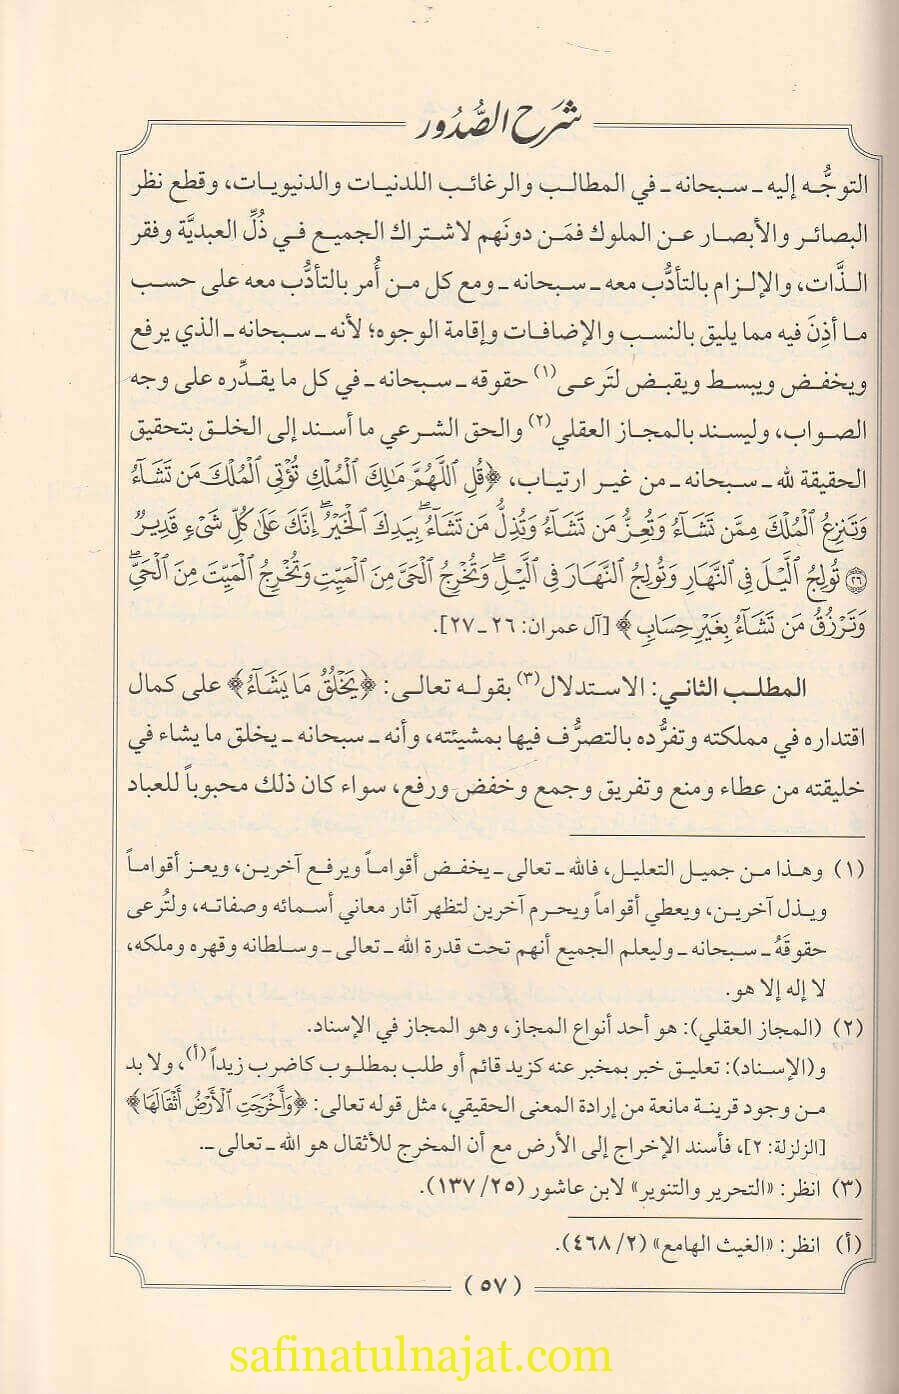 شرح الصُّدُور
التوجُّه إليه ـ سبحانه ـ في المطالب والرغائب اللدنيات والدنيويات، وقطع نظر
البصائر والأبصار عن الملوك فمَن دونَهم لاشتراك الجميع في ذُلِّ العبديَّة وفقر
الذَّات، والإلزام بالتأدُّب معه ـ سبحانه ـ ومع كل من أُمر بالتأدُّب معه على حسب
ما أذِنَ فيه مما يليق بالنسب والإضافات وإقامة الوجوه؛ لأنه ـ سبحانه ـ الذي يرفع
ويخفض ويبسط ويقبض لتَرعى(١) حقوقه ـ سبحانه ـ في كل ما يقدِّره على وجه
الصواب، وليسند بالمجاز العقلي(٢) والحق الشرعي ما أسند إلى الخلق بتحقيق
الحقيقة لله ـ سبحانه ـ من غير ارتياب، ﴿قُلِ ٱللَّهُمَّ مَٰلِكَ ٱلْمُلْكِ تُؤْتِى ٱلْمُلْكَ مَن تَشَآءُ
وَتَنزِعُ ٱلْمُلْكَ مِمَّن تَشَآءُ وَتُعِزُّ مَن تَشَآءُ وَتُذِلُّ مَن تَشَآءُۖ بِيَدِكَ ٱلْخَيْرُۖ إِنَّكَ عَلَىٰ كُلِّ شَىْءٍ قَدِيرٌ
٢٦ تُولِجُ ٱلَّيْلَ فِى ٱلنَّهَارِ وَتُولِجُ ٱلنَّهَارَ فِى ٱلَّيْلِۖ وَتُخْرِجُ ٱلْحَىَّ مِنَ ٱلْمَيِّتِ وَتُخْرِجُ ٱلْمَيِّتَ مِنَ ٱلْحَىِّۖ
وَتَرْزُقُ مَن تَشَآءُ بِغَيْرِ حِسَابٍ﴾ [آل عمران: ٢٦ ـ ٢٧].
المطلب الثاني: الاستدلال(٣) بقوله تعالى: ﴿يَخْلُقُ مَا يَشَآءُ﴾ على كمال
اقتداره في مملكته وتفرُّده بالتصرُّف فيها بمشيئته، وأنه ـ سبحانه ـ يخلق ما يشاء في
خليقته من عطاء ومنع وتفريق وجمع وخفض ورفع، سواء كان ذلك محبوباً للعباد
(١) وهذا من جميل التعليل، فالله ـ تعالى ـ يخفض أقواماً ويرفع آخرين، ويعز أقواماً
ويذل آخرين، ويعطي أقواماً ويحرم آخرين لتظهر آثار معاني أسمائه وصفاته، ولتُرعى
حقوقَهُ ـ سبحانه ـ وليعلم الجميع أنهم تحت قدرة الله ـ تعالى ـ وسلطانه وقهره وملكه،
لا إله إلا هو.
(٢) (المجاز العقلي): هو أحد أنواع المجاز، وهو المجاز في الإسناد.
و(الإسناد): تعليق خبر بمخبر عنه كزيد قائم أو طلب بمطلوب كاضرب زيداً(أ)، ولا بد
من وجود قرينة مانعة من إرادة المعنى الحقيقي، مثل قوله تعالى: ﴿وَأَخْرَجَتِ ٱلْأَرْضُ أَثْقَالَهَا﴾
[الزلزلة: ٢]، فأسند الإخراج إلى الأرض مع أن المخرج للأثقال هو الله ـ تعالى ـ.
(٣) انظر: «التحرير والتنوير» لابن عاشور (٢٥/ ١٣٧).
(أ) انظر: «الغيث الهامع» (٢/ ٤٦٨).
(٥٧)
safinatulnajat.com